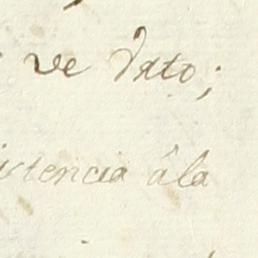 ve dato;
istencia âla